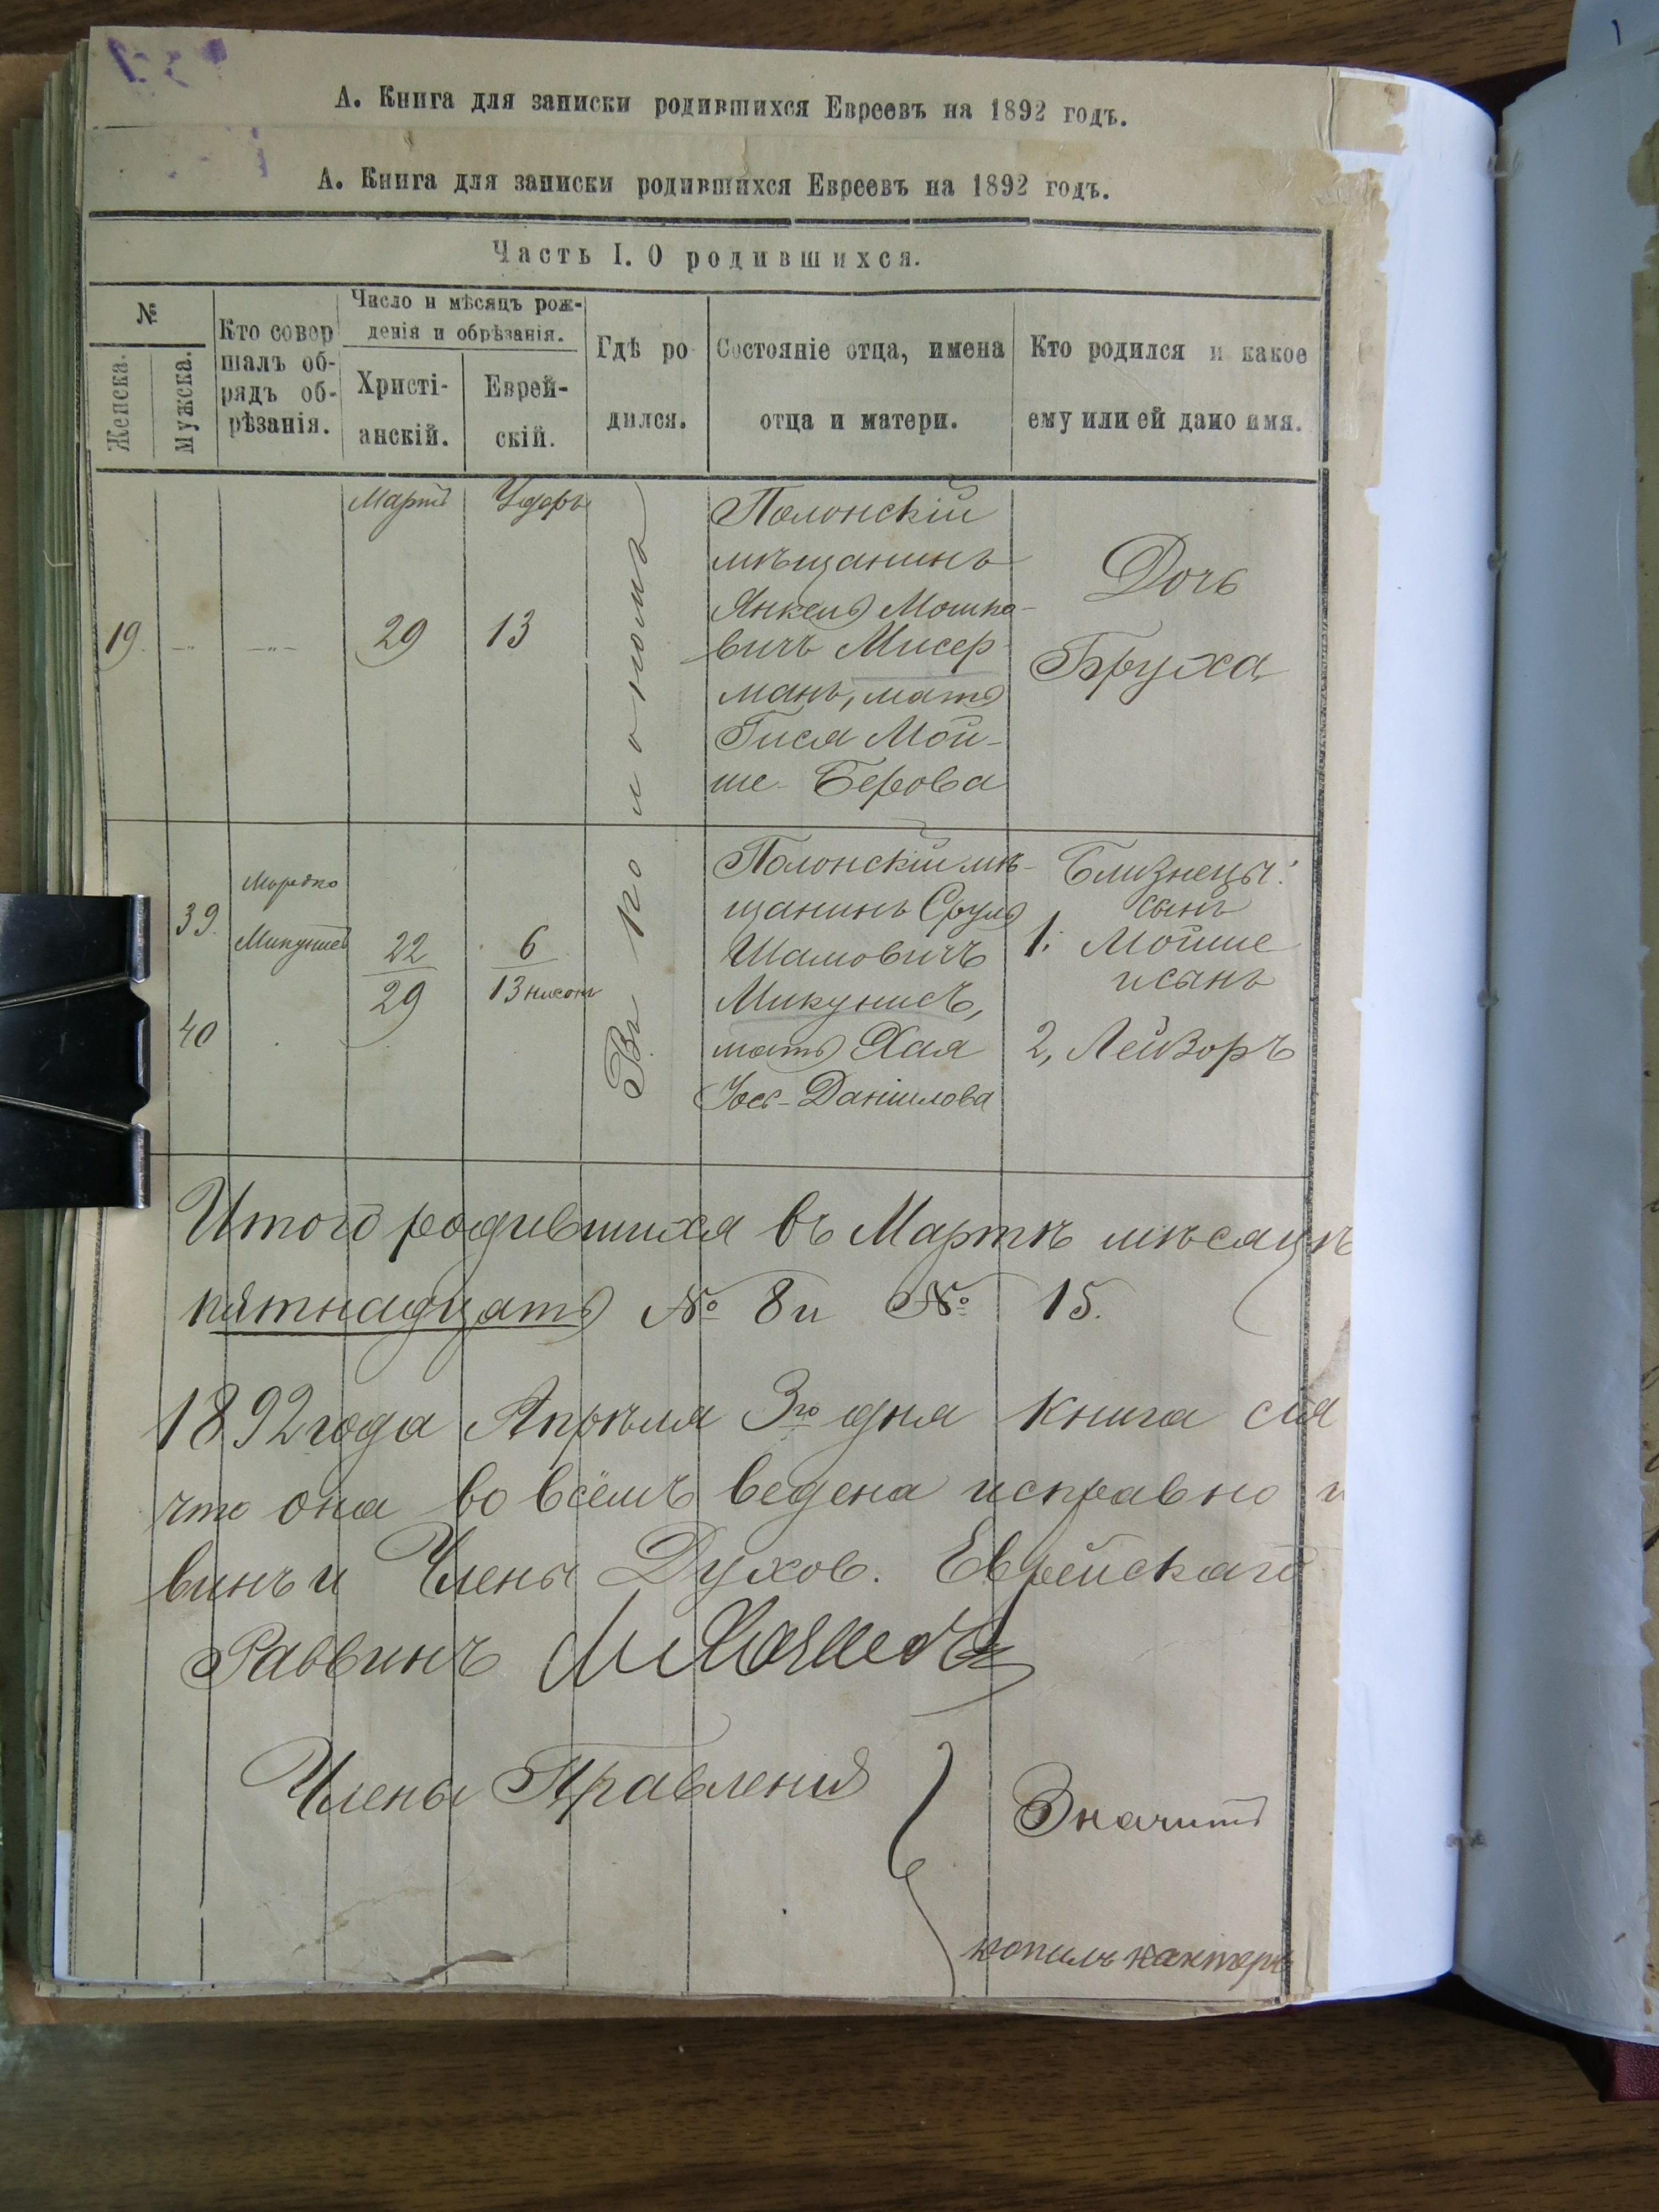 А. Книга для записки родившихся Евреевъ на 1892 годъ.
А. Книга для записки родившихся Евреевъ на 1892 годъ.
Часть I. О родившихся.
№
Женска.
Мужска.
Кто совер
шалъ об-
рядъ об-
рѣзанія.
Число и мѣсяцъ рож-
денія и обрѣзанія.
Христі-
анскій.
Еврей-
скій.
Гдѣ ро
дился.
Состояніе отца, имена
отца и матери.
Кто родился и какое
ему или ей дано имя.
19.
Мартъ
29
13
Въ Полономъ
Полонскій
мѣщанинъ
Янкель Мошко-
вичъ Мисер-
манъ, мать
Гися Мой-
ше-Берова
Дочь
Бруха
39.
40
Мордко
Микунисъ
22
29
6
13 нисонъ
Полонскій мѣ-
щанинъ Сруль
Шамовичъ
Микунисъ,
мать Хая
Іось-Даніилова
Близнецы:
сынъ
1. Мойше
и сынъ
2, Лейзоръ
Итого родившихся въ Мартѣ мѣсяцѣ
пятнадцать № 8 и № 15.
1892 года Апрѣля 3го дня книга сія
что она во всёмъ ведена исправно и
винъ и Члены Духов. Еврейскаго
Раввинъ
Члены Правленія
Значитъ